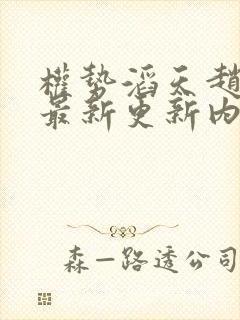 權勢滔天趙
最新更新內
森一路透公司